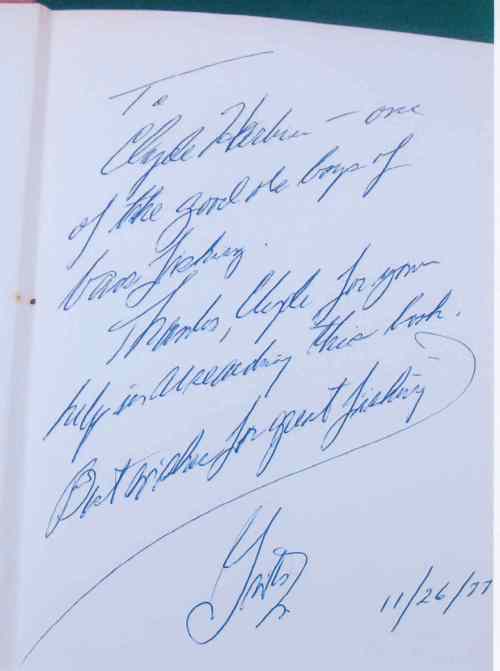 To
Clyde - one
of the good ole boys of
bass fishing.
Thanks, Clyde for your
help in this book.
Best wishes for great fishing
11/26/77